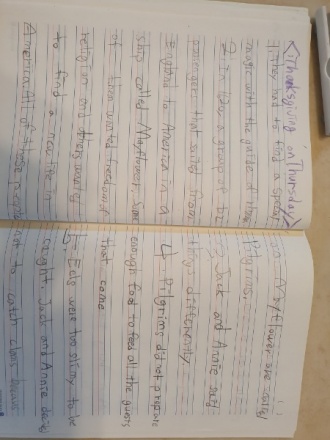 <Thanksgiving on Thursday>
1. They had to find a special
magic with the
2. It has been a group of 102
passengers that sailed from
England to America in a
ship called Mayflower. Some
of them wanted freedom of
religion and they wanted
to find a new life in
America. All of those people on
Mayflower are
Pilgrims.
3. Jack and Annie said
things differently
4. Pilgrims did not prepare
enough food to feed all the guests
that came
5. Eels were too slimy to be
caught. Jack and Annie decided
to catch clams